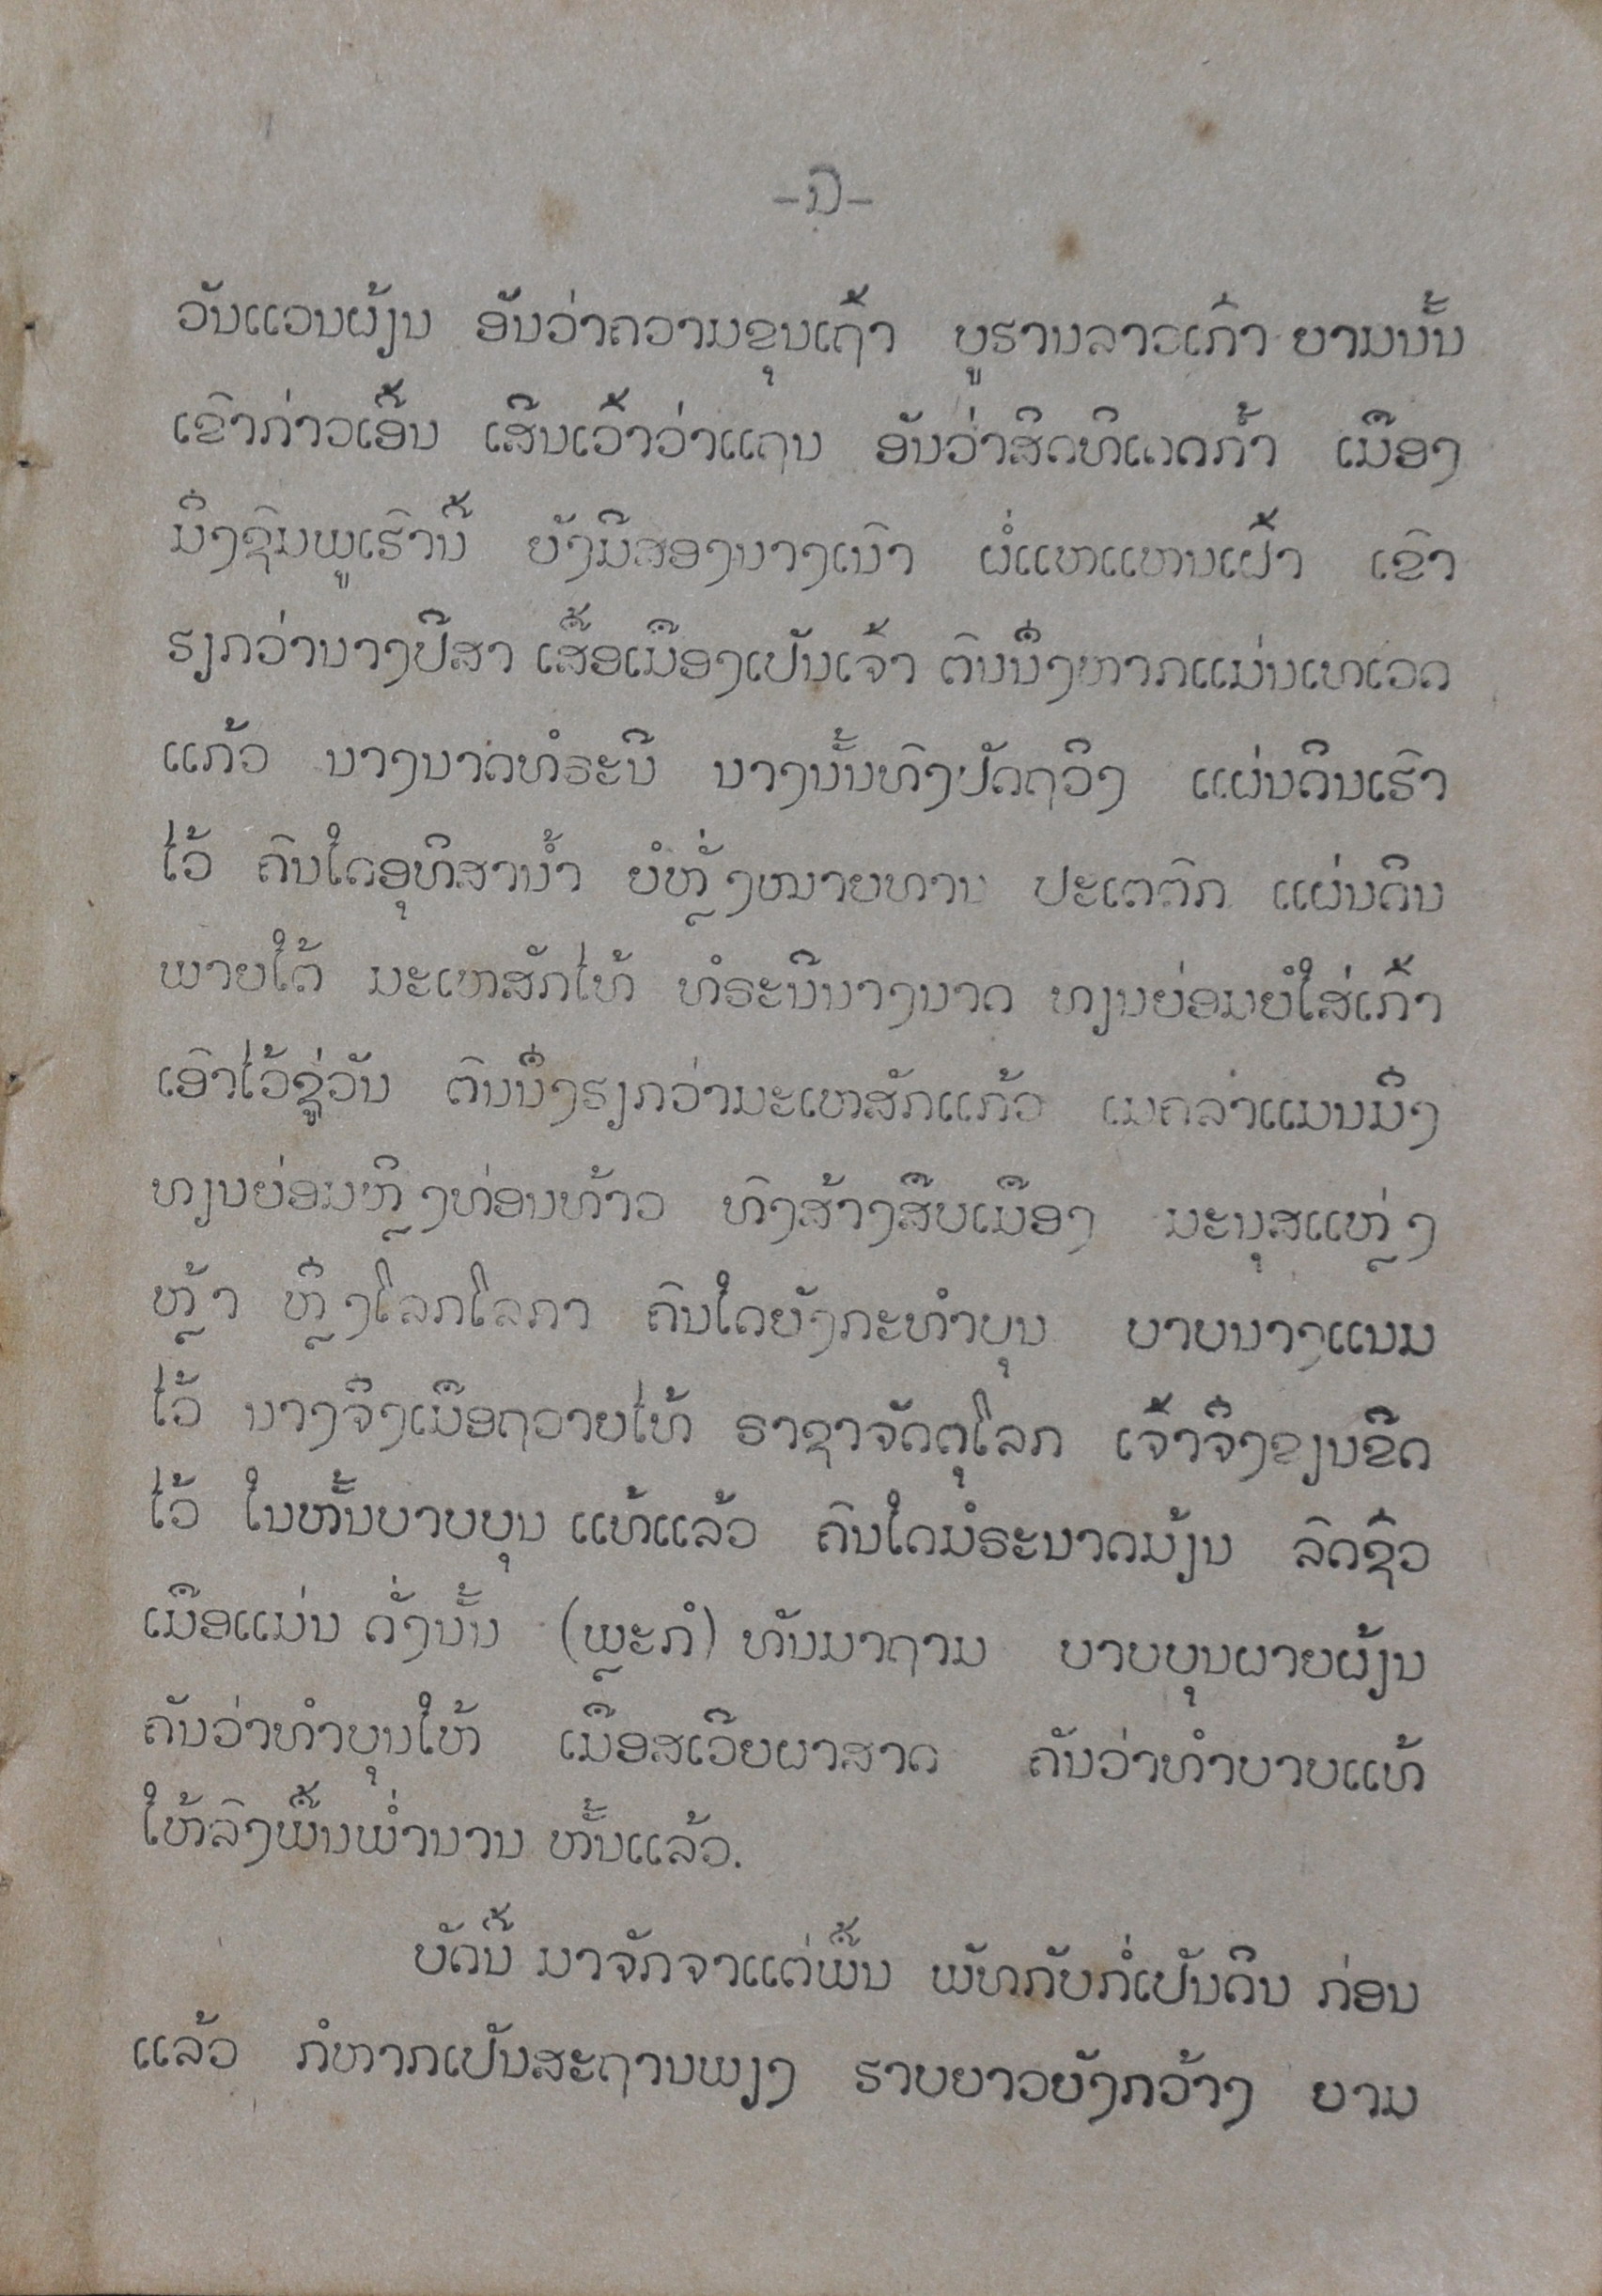 -ປ-
ວັນແວນຜ້ຽນ ອັນວ່າຄວາມຂຸນເຖົ້າ ບູຮານລາວເກົ່າ ຍາມນັ້ນ
ເຂົາກ່າວເອີ້ນ ເສີນເວົ້າວ່າແຖນ ອັນວ່າສິດທິເດດກ້ຳ ເມືອງ
ມິ່ງຊົມພູເຮົານີ້ ຍັງມີສອງນາງເນົາ ຜໍ່ແຫແຫນເຝົ້າ ເຂົາ
ຮຽກວ່ານາງປີສາ ເສື້ອເມືອງເປັນເຈົ້າ ຕົນນຶ່ງຫາກແມ່ນເທເວດ
ແກ້ວ ນາງນາດທໍຣະນີ ນາງນັ້ນທົງປັດຖວີງ ແຜ່ນດິນເຮົາ
ໄວ້ ຄົນໃດອຸທິສານ້ຳ ຍໍຫຼັ່ງໝາຍທານ ປະເຕຕົກ ແຜ່ນດິນ
ພາຍໃຕ້ ມະເຫສັກໄທ້ ທໍຣະນີນາງນາດ ທຽນຍ່ອມຍໍໃສ່ເກົ້າ
ເອົາໄວ້ຊູ່ວັນ ຕົນນຶ່ງຮຽກວ່າມະເຫສັກແກ້ວ ເມຄລ່າແມນມິ່ງ
ທຽນຍ່ອມຫຼິງທ່ອນທ້າວ ທົງສ້າງສືບເມືອງ ມະນຸສແຫຼ່ງ
ຫຼ້າ ຫຼິງໂລກໂລກາ ຄົນໃດຍັງກະທຳບຸນ ບາບນາງແນມ
ໄວ້ ນາງຈຶ່ງເມືອຖວາຍໄທ້ ຣາຊາຈັດຕຸໂລກ ເຈົ້າຈຶ່ງຂຽນຂີດ
ໄວ້ ໃນຫັ້ນບາບບຸນ ແທ້ແລ້ວ ຄົນໃດມໍຣະນາດມ້ຽນ ລົດຊົ່ວ
ເມືອແມ່ນ ດັ່ງນັ້ນ (ພຼະກໍ) ທັນມາຖາມ ບາບບຸນຜາຍຜ້ຽນ
ຄັນວ່າທຳບຸນໃຫ້ ເມືອສເວີຍຜາສາດ ຄັນວ່າທຳບາບແທ້
ໃຫ້ລົງພື້ນພ່ຳນານ ຫັ້ນແລ້ວ.
ບັດນີ້ ມາຈັກຈາແຕ່ພື້ນ ພັທກັບກໍ່ເປັນດິນ ກ່ອນ
ແລ້ວ ກໍຫາກເປັນສະຖານພຽງ ຮາບຍາວຍັງກວ້າງ ຍາມ